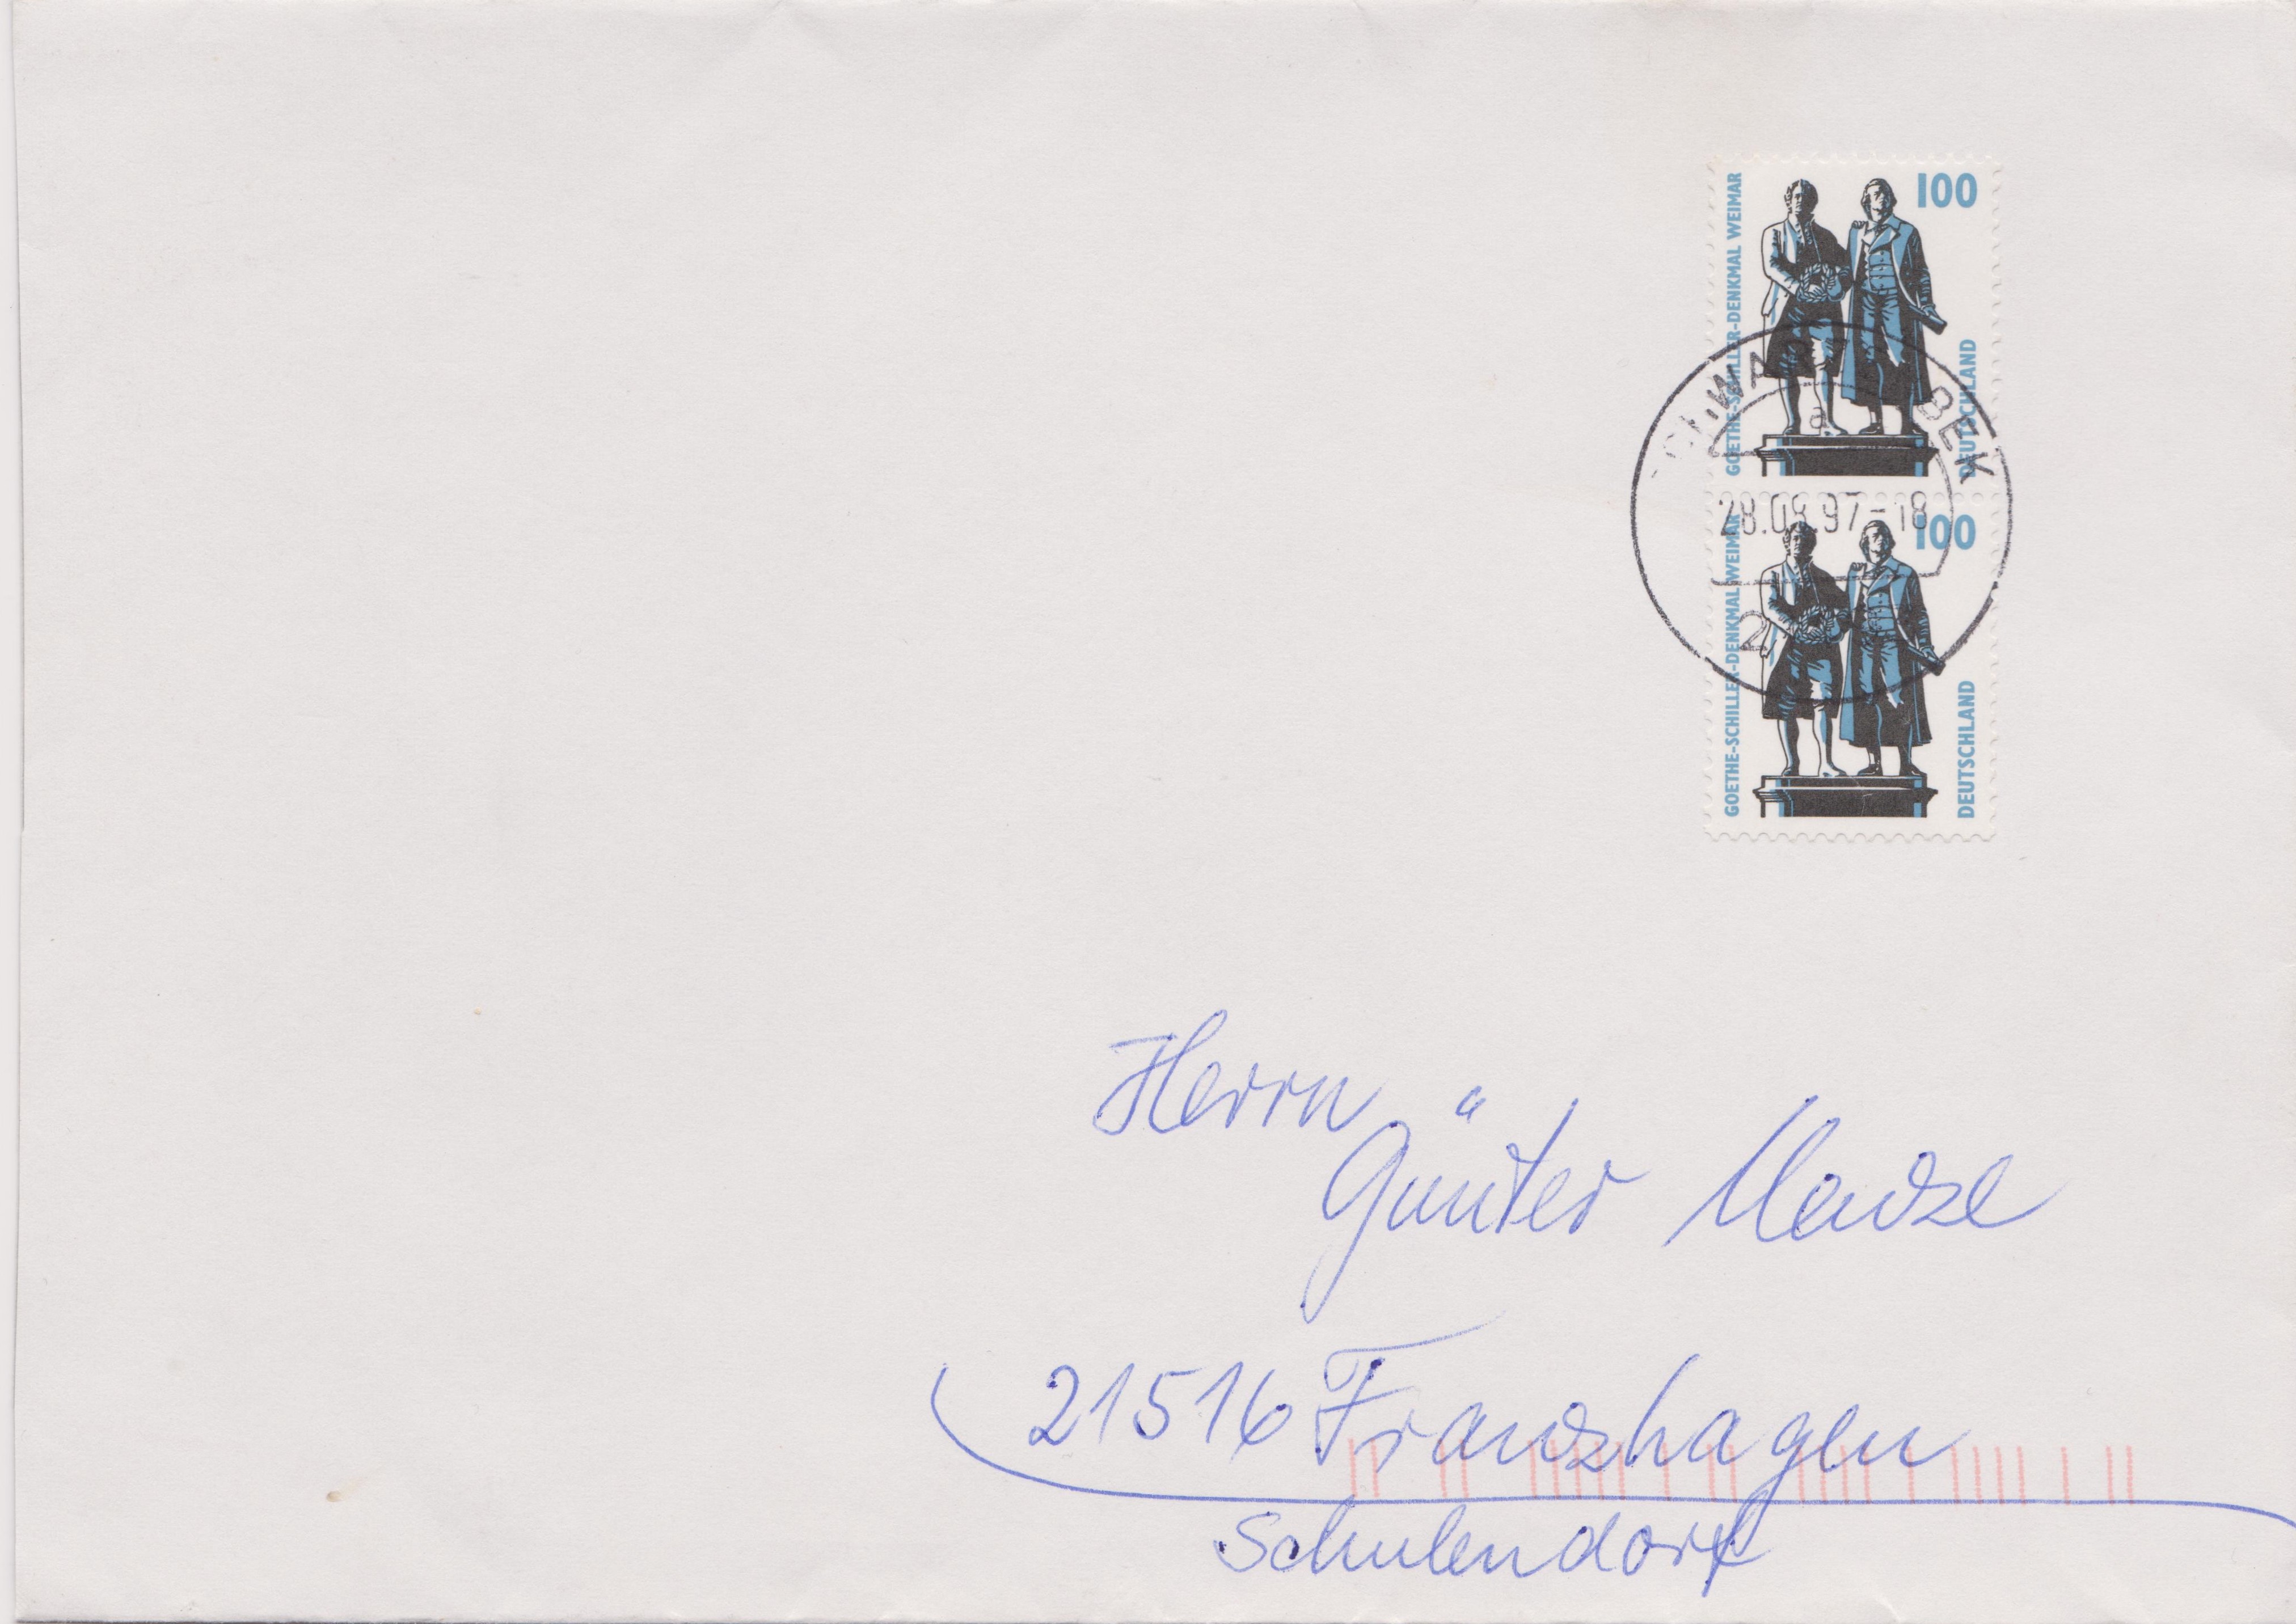 GOETHE-SCHILLER-DENKMAL WEIMAR
100
DEUTSCHLAND
BEK
a
28.08.97-18
2
GOETHE-SCHILLER-DENKMAL WEIMAR
100
DEUTSCHLAND
Herrn
Günter
21516 Franzhagen
Schulendorf